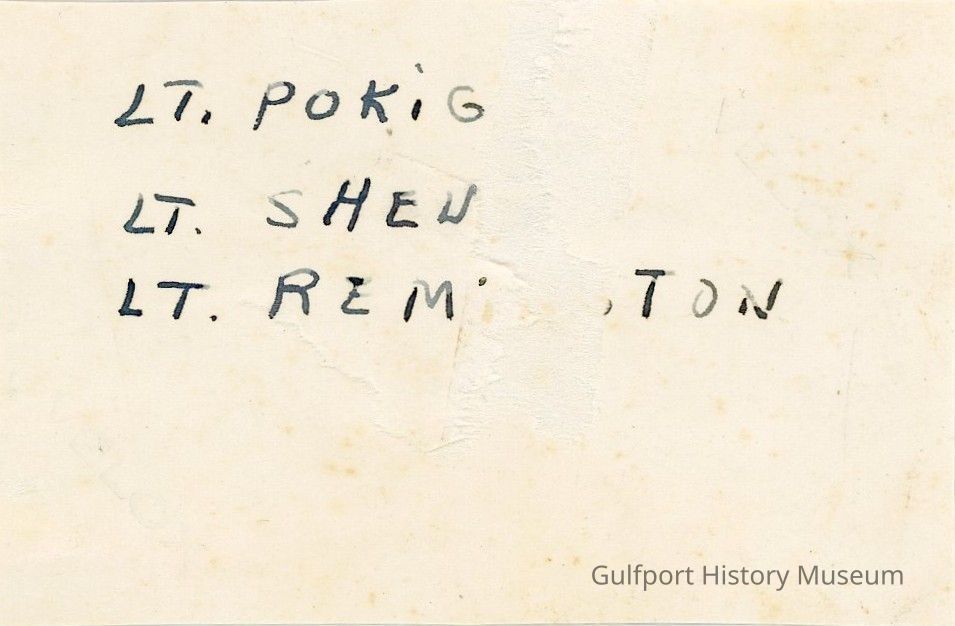 LT. POKiG
LT. SHEN
LT.
Gulfport History Museum